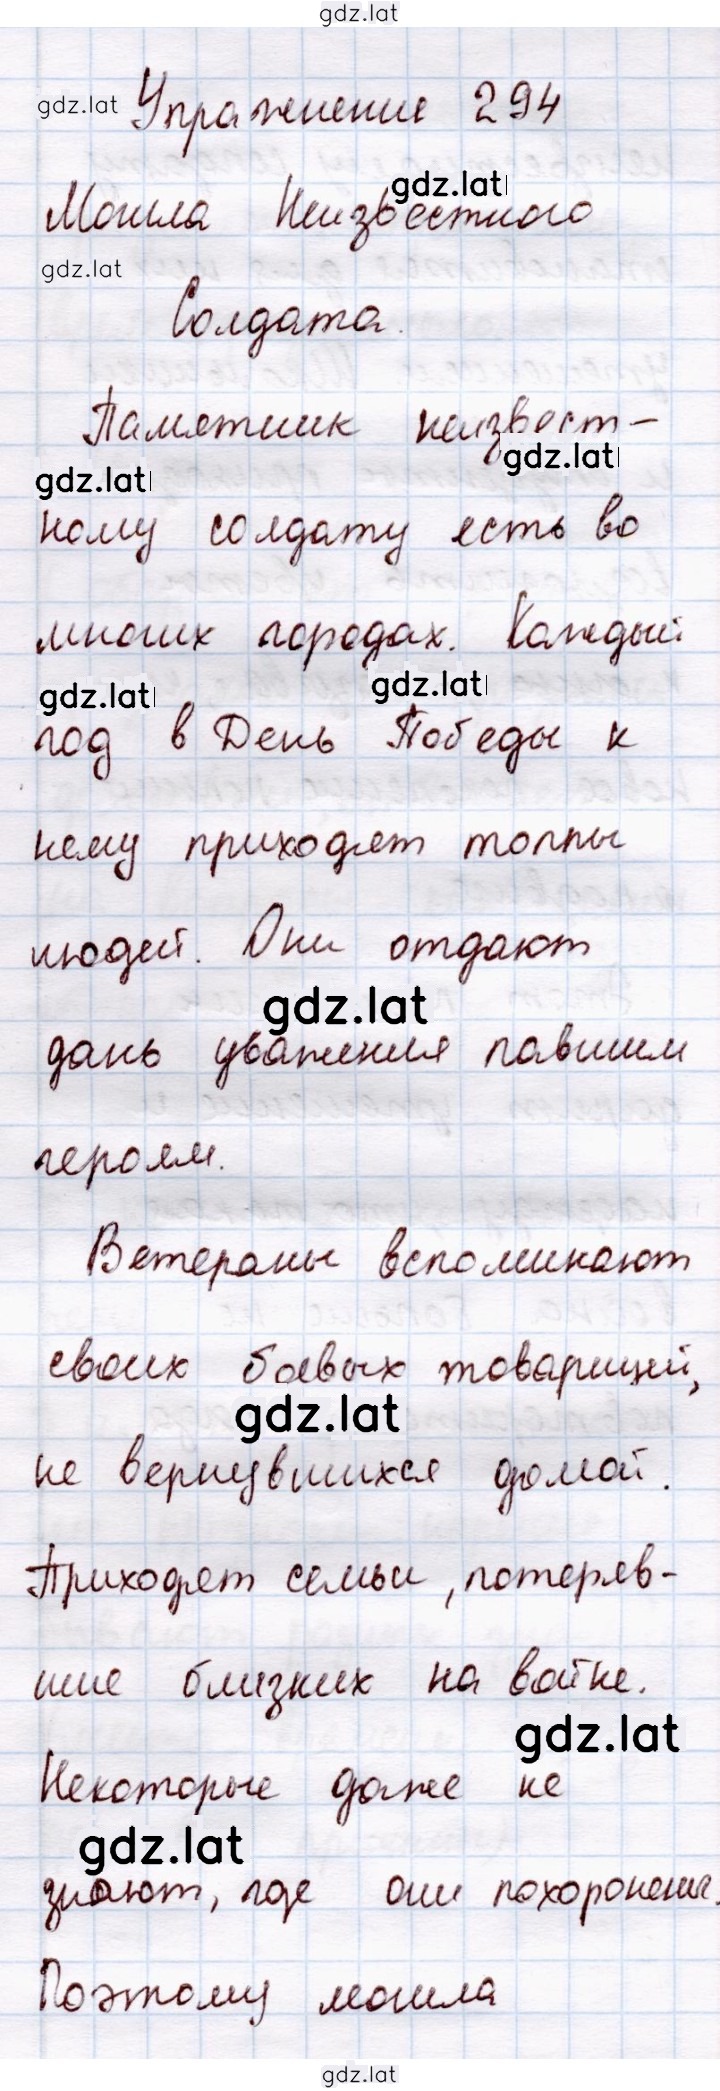 gdz.lat
gdz.lat
Упражнение 294
gdz.lat
Могила Неизвестного
gdz.lat
Солдата.
Памятник неизвест-
gdz.lat
gdz.lat
ному солдату есть во
многих городах. Каждый
gdz.lat
gdz.lat
год в День Победы к
нему приходят толпы
людей. Они отдают
gdz.lat
дань уважения павшим
героям.
Ветераны вспоминают
своих боевых товарищей,
gdz.lat
не вернувшихся домой.
Приходят семьи, потеряв-
шие близких на войне.
gdz.lat
Некоторые даже не
gdz.lat
знают, где они похоронены.
Поэтому могила
gdz.lat